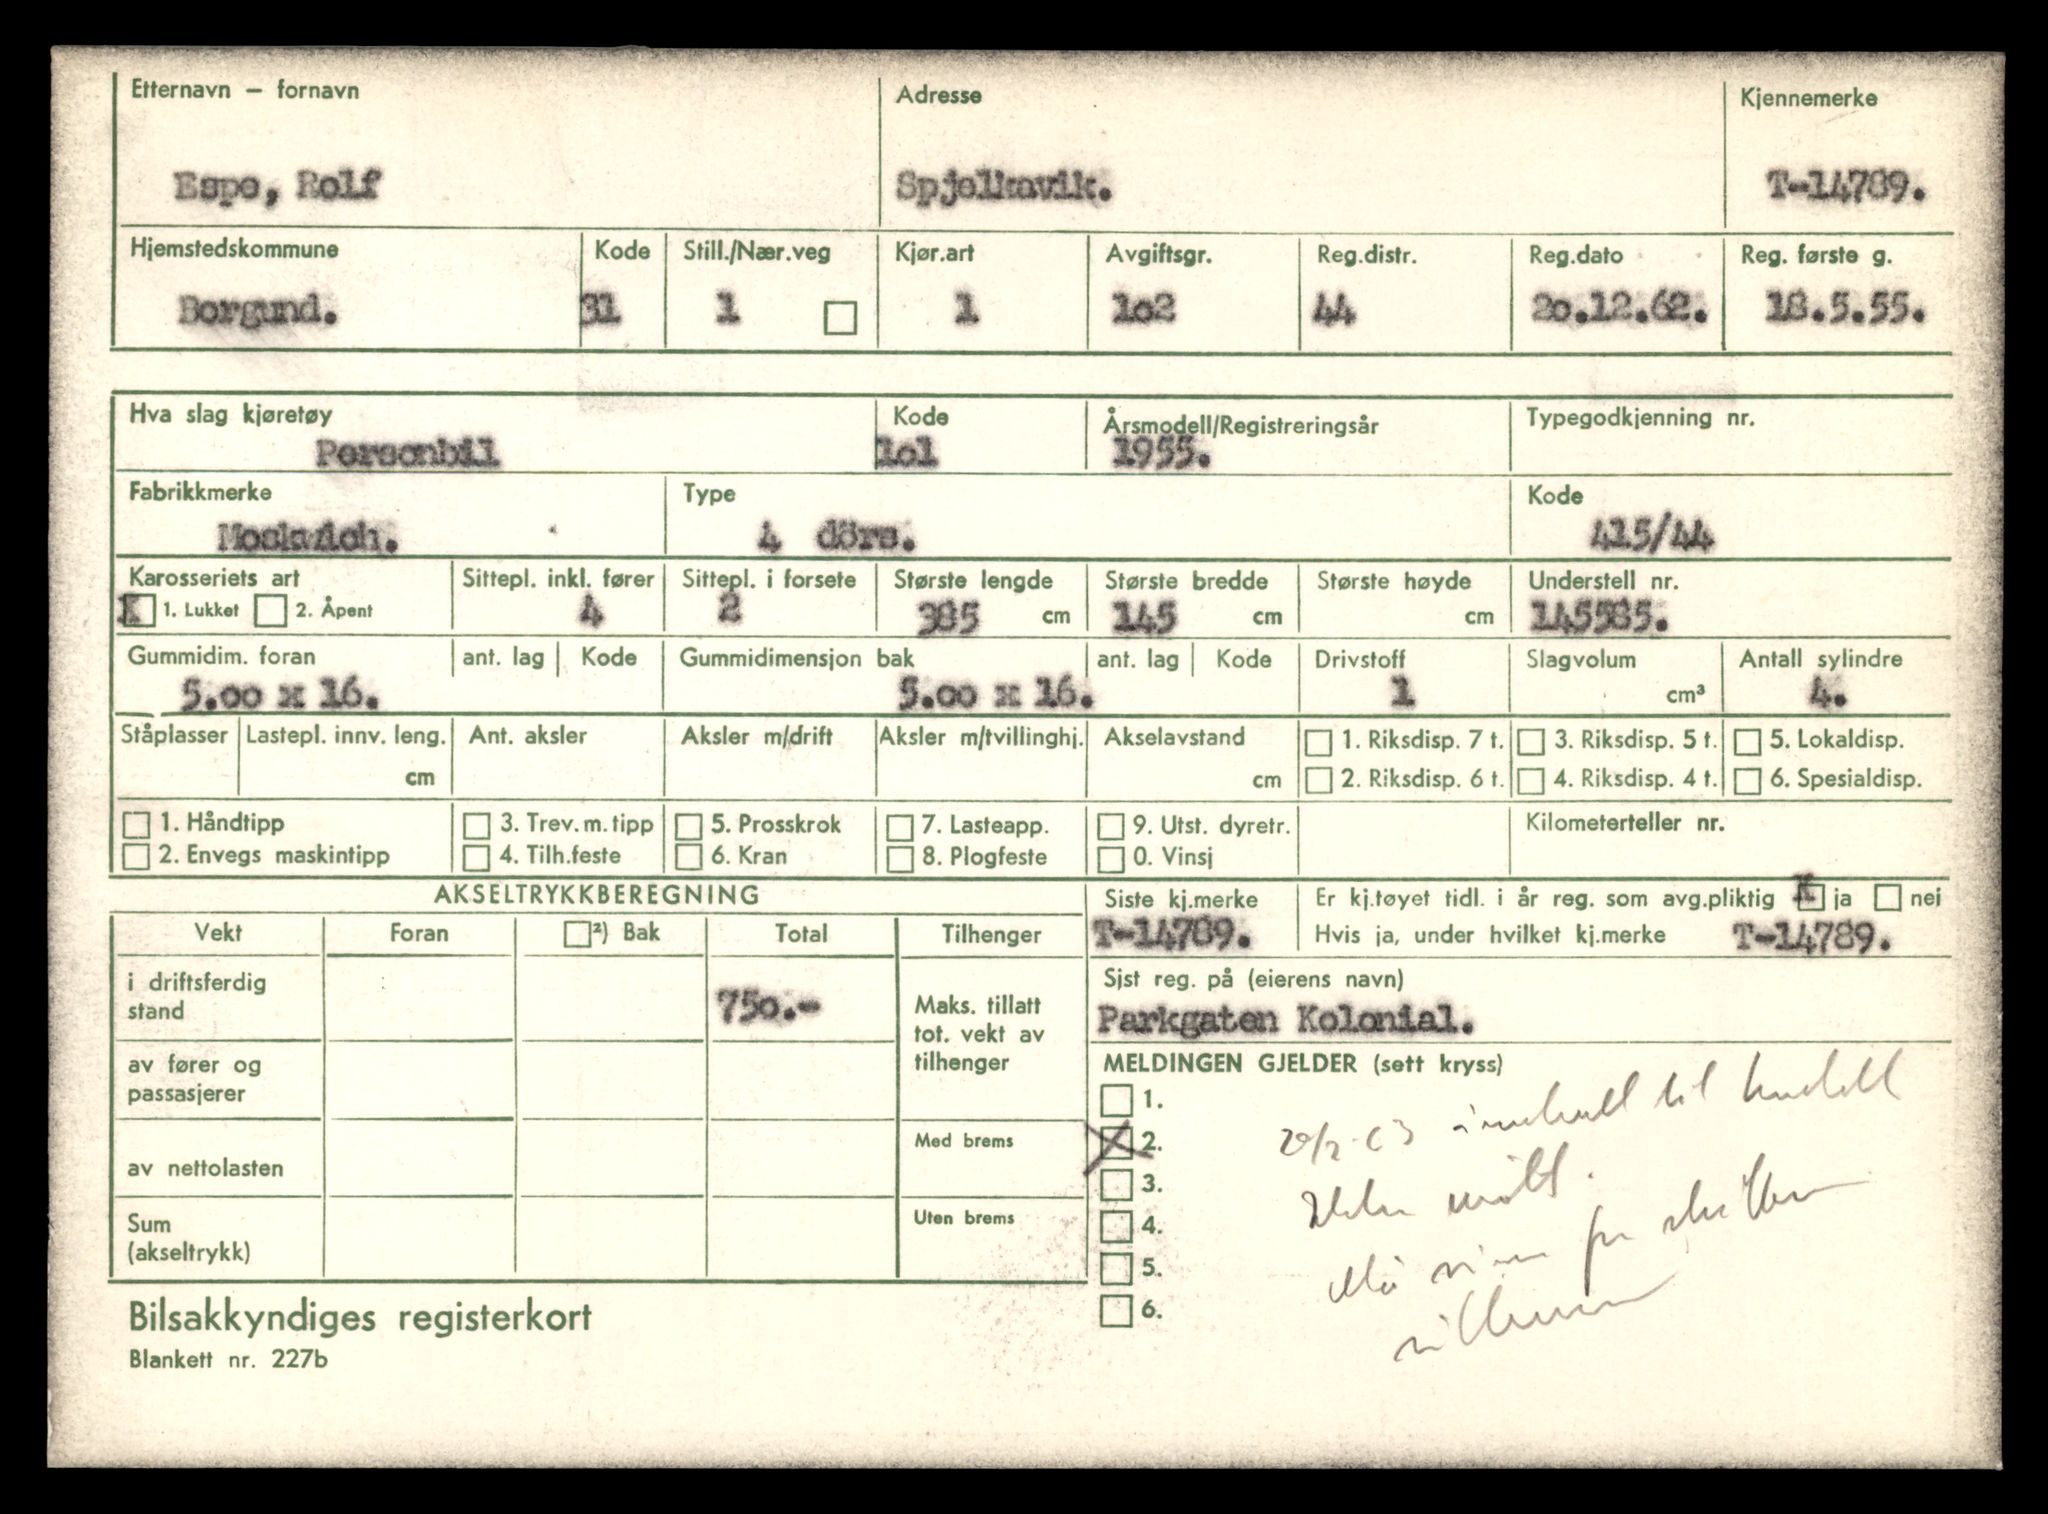 Etternavn – fornavn Adresse Kjennemerke
Espe, Rolf Spjelkavik. T-14789.
Hjemstedskommune Kode Still./Nær.veg Kjør.art Avgiftsgr. Reg.distr. Reg.dato Reg. første g.
Borgund. 31 1 1 1o2 44 2o.12.62. 18.5.55.
Hva slag kjøretøy Kode Årsmodell/Registreringsår Typegodkjenning nr.
Personbil 1o1 1955.
Fabrikkmerke Type Kode
Moskvich. 4 dörs. 415/44
Karosseriets art Sittepl. inkl. fører Sittepl. i forsete Største lengde Største bredde Største høyde Understell nr.
X 1. Lukket 2. Åpent 4 2 385 cm 145 cm cm 145585.
Gummidim. foran ant. lag Kode Gummidimensjon bak ant. lag Kode Drivstoff Slagvolum Antall sylindre
5.oo x 16. 5.oo x 16. 1 cm³ 4.
Ståplasser Lastepl. innv. leng. Ant. aksler Aksler m/drift Aksler m/tvillinghj. Akselavstand 1. Riksdisp. 7 t. 3. Riksdisp. 5 t. 5. Lokaldisp.
cm cm 2. Riksdisp. 6 t. 4. Riksdisp. 4 t. 6. Spesialdisp.
1. Håndtipp 3. Trev. m. tipp 5. Prosskrok 7. Lasteapp. 9. Utst. dyretr. Kilometerteller nr.
2. Envegs maskintipp 4. Tilh.feste 6. Kran 8. Plogfeste 0. Vinsj
AKSELTRYKKBEREGNING Siste kj.merke Er kj.tøyet tidl. i år reg. som avg.pliktig X ja nei
Vekt Foran ²) Bak Total Tilhenger T-14789. Hvis ja, under hvilket kj.merke T-14789.
i driftsferdig
stand 750.-
Maks. tillatt
tot. vekt av
tilhenger
Sist reg. på (eierens navn)
Parkgaten Kolonial.
av fører og
passasjerer
MELDINGEN GJELDER (sett kryss)
1.
Med brems X 2.
av nettolasten 3.
Sum
(akseltrykk)
Uten brems 4.
5.
6.
innkalt til
Ikke møtt.
Bilsakkyndiges registerkort
Blankett nr. 227b